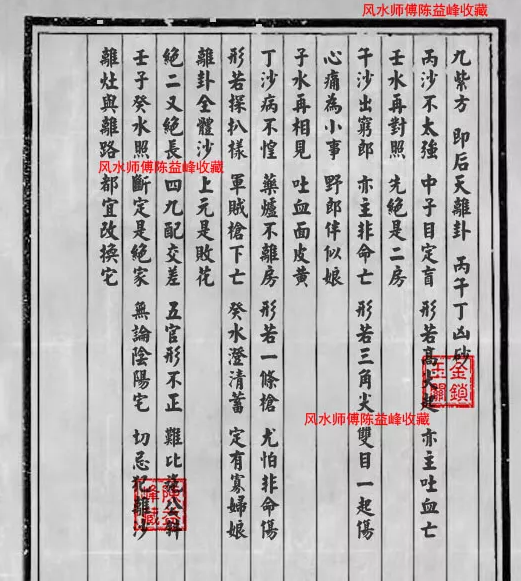 风水师傅陈益峰收藏
九紫方 即后天離卦 丙午丁凶砂
丙沙不太強 中子目定盲 形若高尖起 亦主吐血亡
壬水再對照 先絕是二房
午沙出窮郎 亦主非命亡 形若三角尖 雙目一起傷
心痛為小事 野郎伴似娘
子水再相見 吐血面皮黄
丁沙病不惶 藥爐不離房 形若一條槍 尤怕非命傷
形若探扒樣 軍賊槍下亡 癸水澄清蓄 定有寡婦娘
離卦全體沙 上元是敗花
絕二又絕長 四九配交差 五官形不正 難比
壬子癸水照 斷定是絕家 無論陰陽宅 切忌犯離沙
離灶與離路 都宜改換宅
风水师傅陈益峰收藏
风水师傅陈益峰收藏
金鎖
玉關
陳益
峰藏